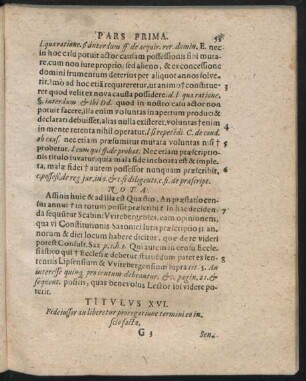 PARS PRIMA. 53
l. qua ratione. §. interdum ff. de acquir. rer. domin. E. nec
in hoc casu potuit actor causam possessionis sibi muta-
re, cum non iure proprio, sed alieno, & ex concessione
domini frumentum deterius per aliquot annos solve-
rit. Imò ad hoc etiā requireretur, ut animo constitue-
ret quod velit ex nova causa possidere
§. interdum & ibi quod in nostro casu actor non
potuit facere, illa enim voluntas in apertum produci &
declarari debuisset, alias nulla existeret, voluntas enim in
mente retenta nihil operatur. C. de cond.
ob caus. nec etiam præsumitur mutata voluntas nisi †
probetur. l. eum qui ff. de probat. Nec etiam præscriptio-
nis titulo iuvatur, quia mala fide inchoata est & imple-
ta, malæ fidei † autem possessor nunquam præscribit
c. possess. de reg. jur. in 6. & c. si diligenti, c. fi. de præscript.
NOTA.
Affinis huic & ad illa est Quæstio. An præstatio cen-
sus annui † in totum possit præscribi? In hac deciden-
da sequitur Scabinus Vvitebergenses, eam opinionem,
qua vi Constitutionis Saxonici Iuris præscriptio 31 an-
norum & diei locum habere dicitur, quo de re videri
potest Consult. Sax. p. 1. Qui autem in censu Eccle-
siastico qui † Ecclesiæ debetur statuendum patet ex sen-
tentiis Lipsensium & Vvitebergensium supra tit. 5. An
interesse quinq; procentum debeantur, & pagin. 21. &
sequent. positis, quas benevolus Lector ibi videre po-
terit.
TITVLVS XVI.
Fideiussor an liberetur prorogatione termini eo in-
scio facta.
G 3 Sen-